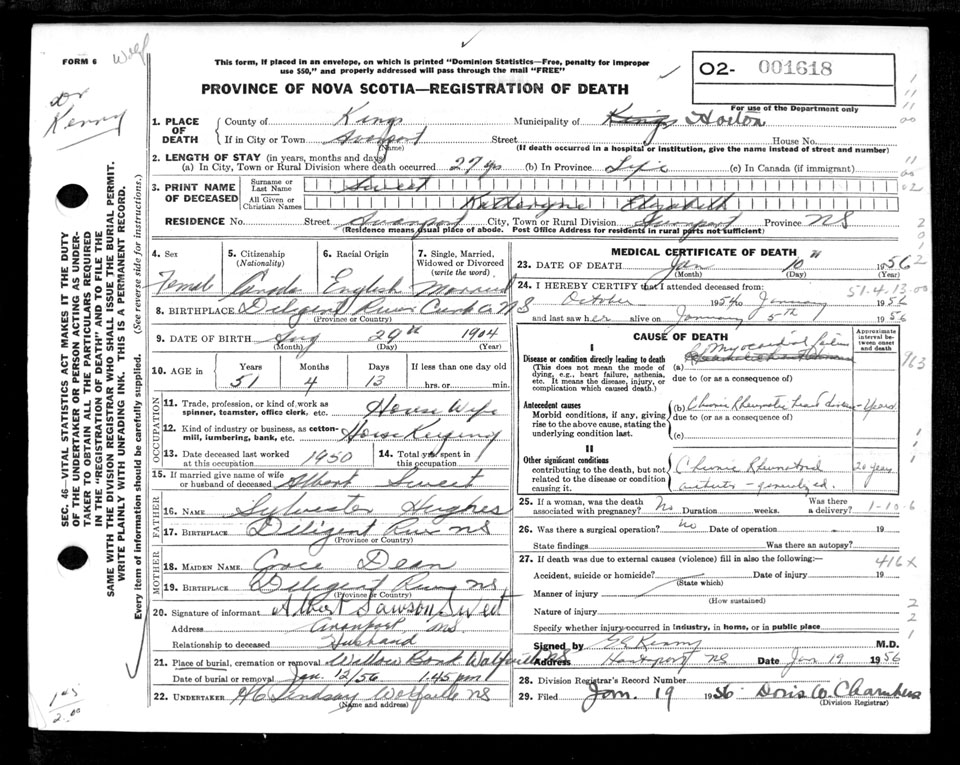 FORM 6
Wolf
This form, if placed in an envelope, on which is printed "Dominion Statistics—Free, penalty for improper
use $50," and properly addressed will pass through the mail "FREE"
O2- 001618
For use of the Department only
Dr
Kenny
PROVINCE OF NOVA SCOTIA—REGISTRATION OF DEATH
1. PLACE OF DEATH
County of Kings Municipality of Kings Horton
If in City or Town Avonport Street House No.
(Name) (If death occurred in a hospital or institution, give the name instead of street and number)
2. LENGTH OF STAY (in years, months and days)
(a) In City, Town or Rural Division where death occurred 27 yrs (b) In Province Life (c) In Canada (if immigrant)
3. PRINT NAME OF DECEASED
Surname or Last Name Sweet
All Given or Christian Names Katheryne Elizabeth
RESIDENCE No. Street Avonport City, Town or Rural Division Avonport Province NS
(Residence means usual place of abode. Post Office Address for residents in rural parts not sufficient)
4. Sex 5. Citizenship (Nationality) 6. Racial Origin 7. Single, Married, Widowed or Divorced (write the word)
Female Canada English Married
8. BIRTHPLACE Diligent River Cumb Co NS
(Province or Country)
9. DATE OF BIRTH Aug 29th 1904
(Month) (Day) (Year)
10. AGE in Years Months Days If less than one day old
51 4 13 hrs. or min.
OCCUPATION
11. Trade, profession, or kind of work as spinner, teamster, office clerk, etc. House Wife
12. Kind of industry or business, as cotton-mill, lumbering, bank, etc. House Keeping
13. Date deceased last worked at this occupation 1950 14. Total yrs spent in this occupation
15. If married give name of wife or husband of deceased Albert Sweet
FATHER
16. NAME Sylvester Hughes
17. BIRTHPLACE Diligent River NS
(Province or Country)
MOTHER
18. MAIDEN NAME Grace Dean
19. BIRTHPLACE Diligent River NS
(Province or Country)
20. Signature of informant Albert Lawson Sweet
Address Avonport NS
Relationship to deceased Husband
21. Place of burial, cremation or removal Willow Bank Wolfville NS
Date of burial or removal Jan. 12/56 1.45 pm
22. UNDERTAKER H C Lindsay Wolfville NS
(Name and address)
MEDICAL CERTIFICATE OF DEATH
23. DATE OF DEATH Jan 10 1956
(Month) (Day)
24. I HEREBY CERTIFY that I attended deceased from: 51-4-13-00
October 1954 to January 1956
and last saw her alive on January 5th 1956
CAUSE OF DEATH
Approximate interval between onset and death
I
Disease or condition directly leading to death
(This does not mean the mode of dying, e.g., heart failure, asthenia, etc. It means the disease, injury, or complication which caused death.)
(a) Myocardial
due to (or as a consequence of)
Antecedent causes
Morbid conditions, if any, giving rise to the above cause, stating the underlying condition last.
(b) Chronic Rheumatic heart disease - Years
due to (or as a consequence of)
(c)
II
Other significant conditions
contributing to the death, but not related to the disease or condition causing it.
Chronic Rheumatoid 20 years
arthritis - generalized.
25. If a woman, was the death associated with pregnancy? No Duration weeks. Was there a delivery?
1-10-6
26. Was there a surgical operation? No Date of operation 19
State findings Was there an autopsy?
27. If death was due to external causes (violence) fill in also the following:
416X
Accident, suicide or homicide? Date of injury 19
(State which)
Manner of injury
(How sustained)
Nature of injury
Specify whether injury occurred in industry, in home, or in public place
Signed by G E Kenny M.D.
Address Hantsport NS Date Jan 19 1956
28. Division Registrar's Record Number
29. Filed Jan. 19 1956 Doris W. Chambers
(Division Registrar)
SEC. 46—VITAL STATISTICS ACT MAKES IT THE DUTY
OF THE UNDERTAKER OR PERSON ACTING AS UNDER-
TAKER TO OBTAIN ALL THE PARTICULARS REQUIRED
IN THE "REGISTRATION OF DEATH" AND TO FILE THE
SAME WITH THE DIVISION REGISTRAR WHO SHALL ISSUE THE BURIAL PERMIT.
WRITE PLAINLY WITH UNFADING INK. THIS IS A PERMANENT RECORD.
Every item of information should be carefully supplied. (See reverse side for instructions.)
963
1.45
2.00